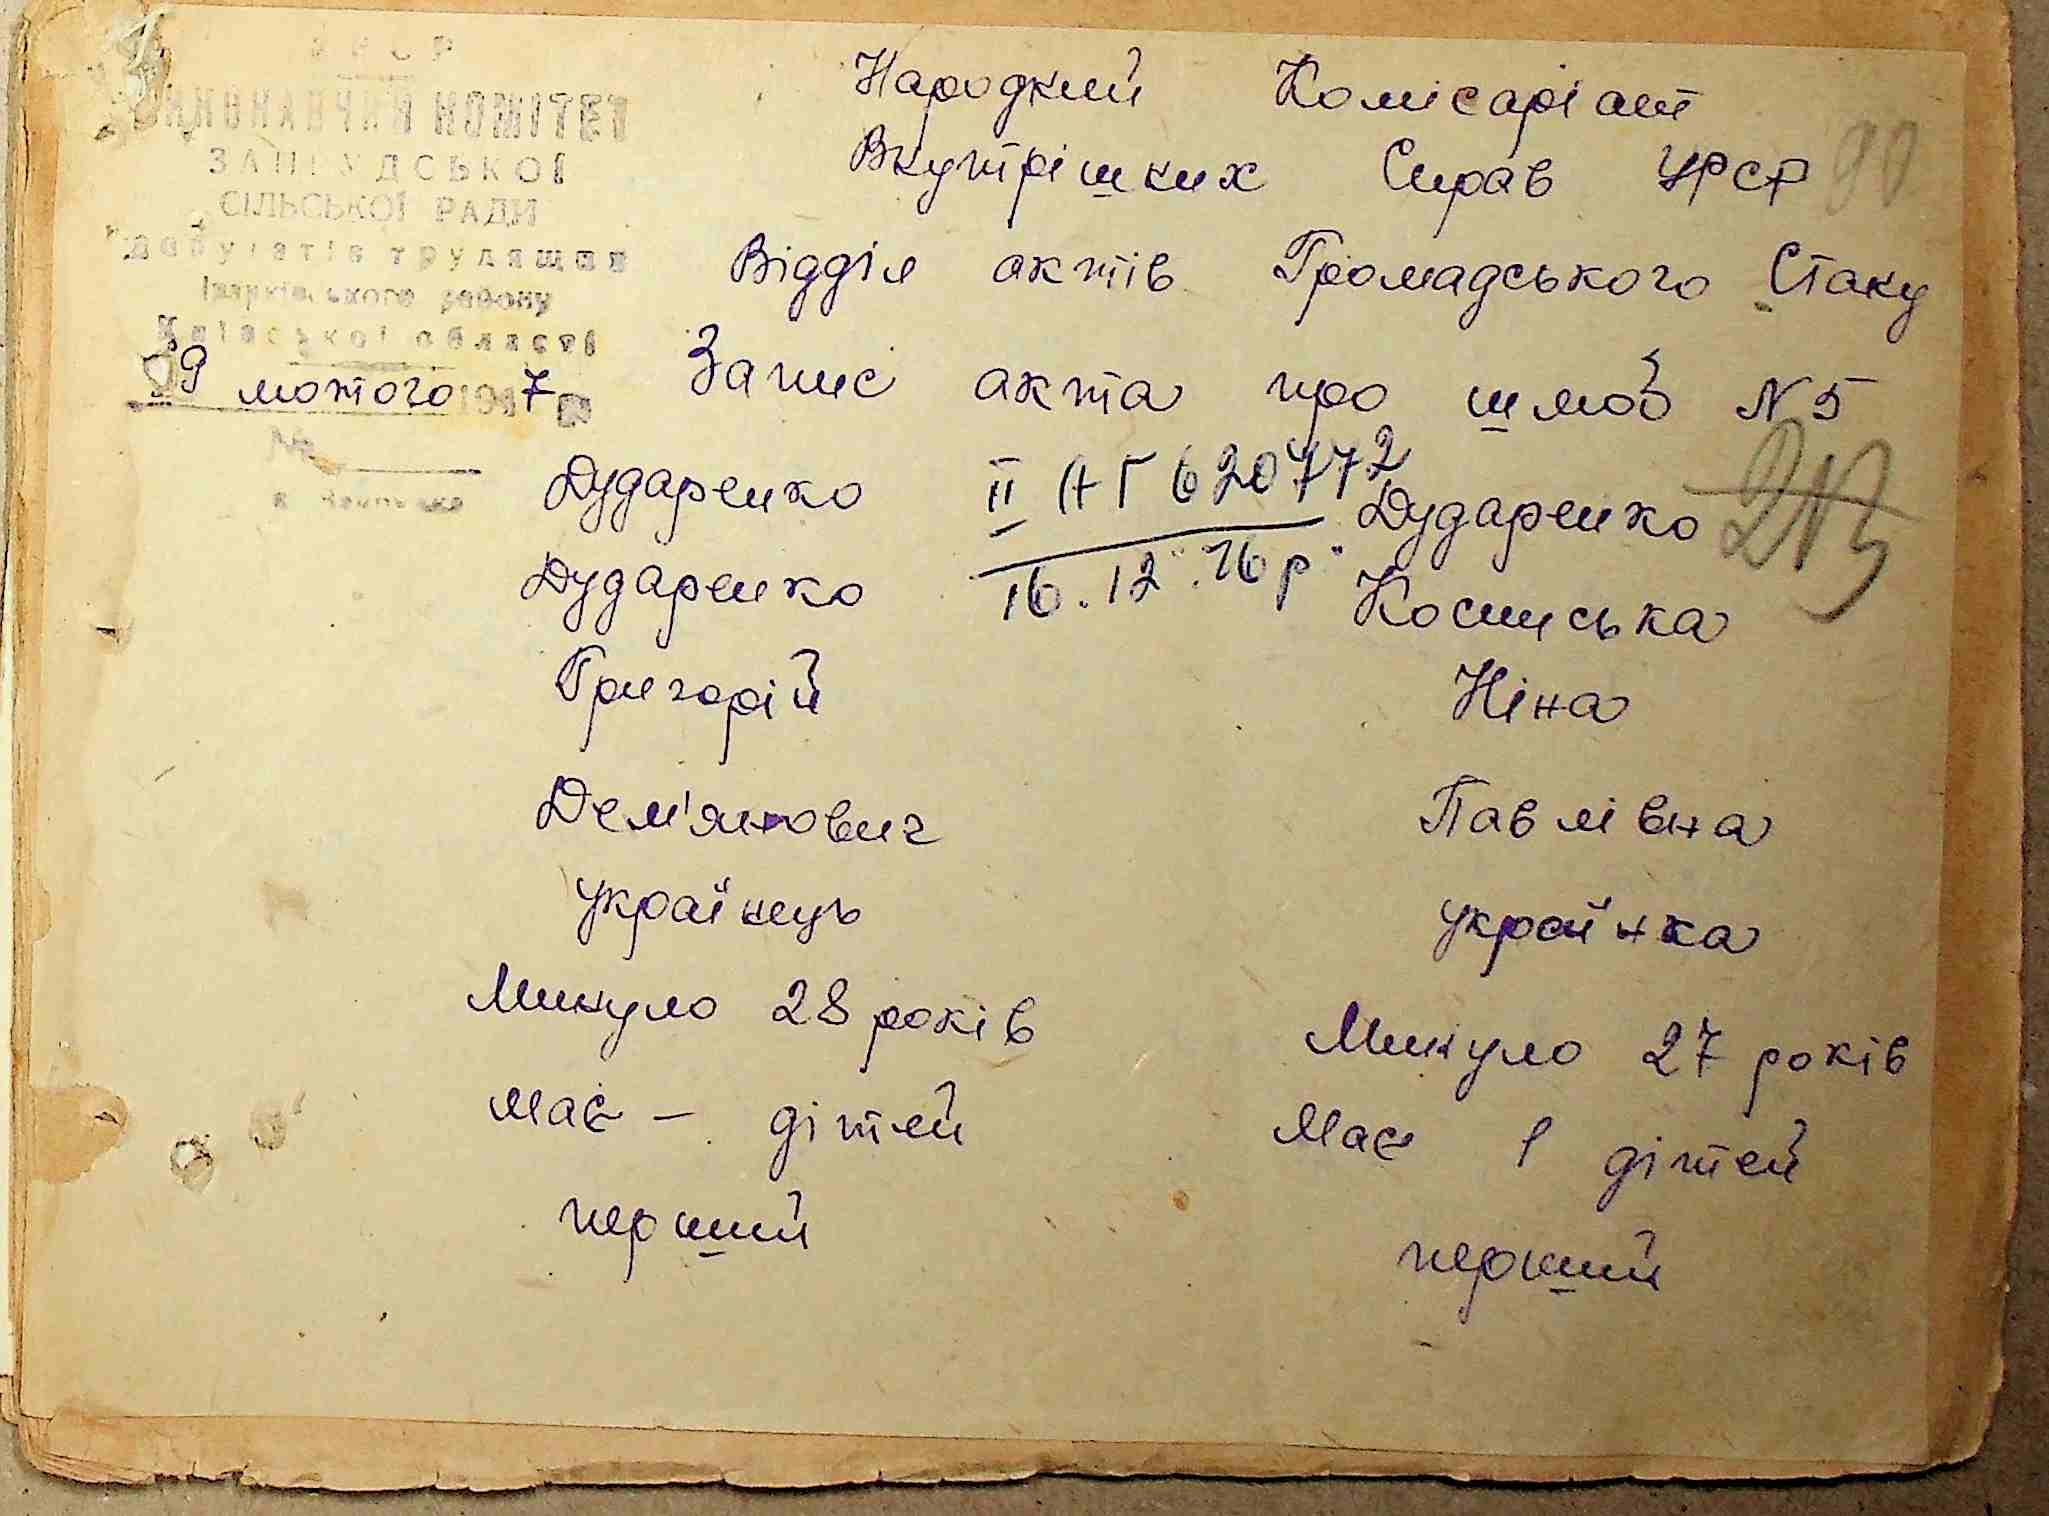 УРСР
ВИКОНАВЧИЙ КОМІТЕТ
СІЛЬСЬКОЇ РАДИ
депутатів трудящих
району
Київської області
9 лютого 1947 р.
№
Народний Комісаріат
Внутрішних Справ УРСР
90
Відділ актів Громадського Стану
Запис акта про шлюб N 5
213
Дударенко ІІ АГ 620772 Дударенко
Дударенко 16.12.76 р. Косинська
Григорій Ніна
Дем'янович Павлівна
українець українка
Минуло 28 років Минуло 27 років
має — дітей має 1 дітей
перший перший